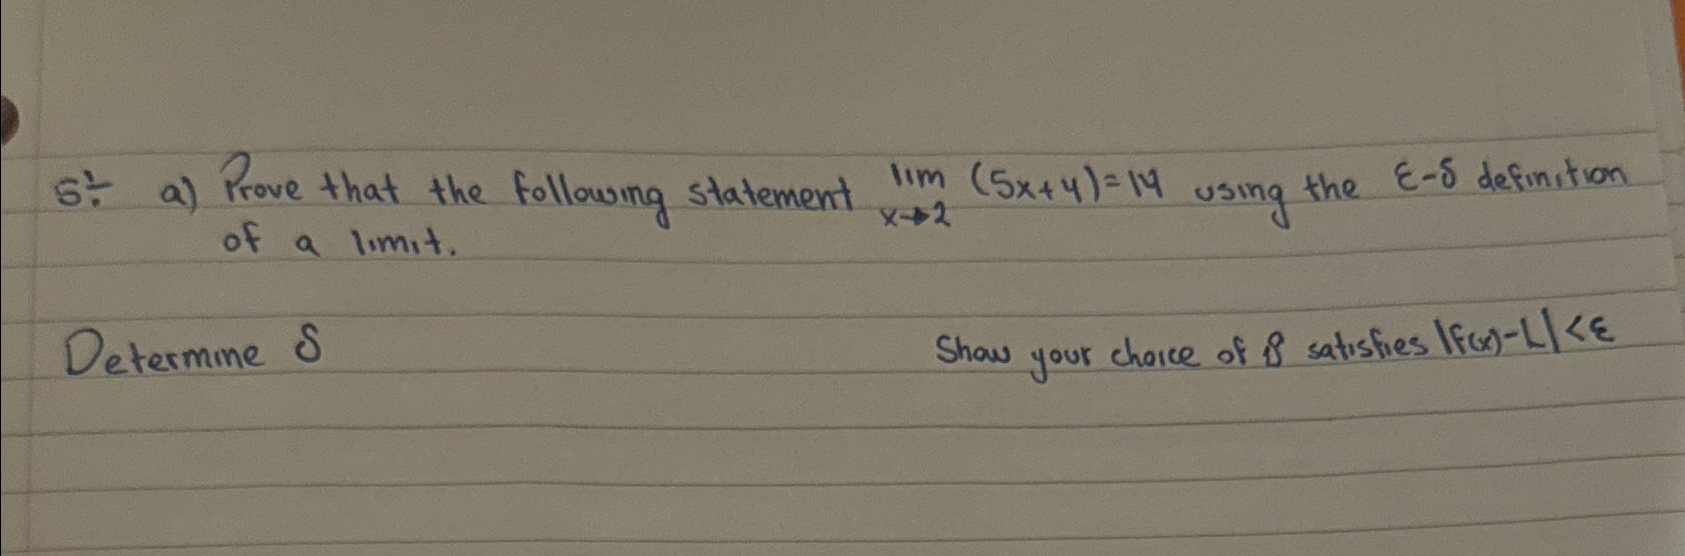 5: a) Prove that the following statement lim x→2 (5x+4)=14 using the ε-δ definition
of a limit.
Determine δ Show your choice of δ satisfies |f(x)-L|<ε